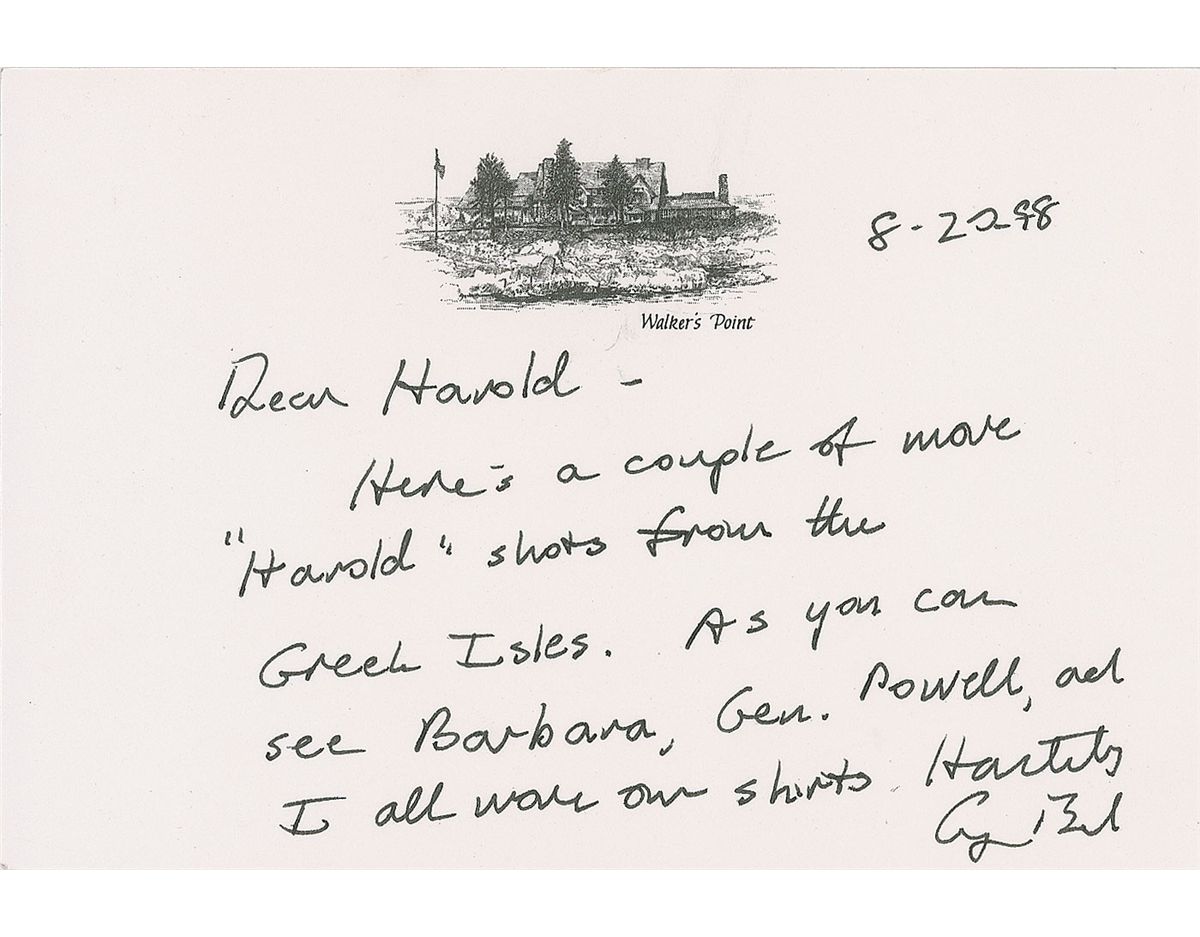 Walker's Point
8-22-98
Dear Harold -
Here's a couple of more
"Harold" shots from the
Greek Isles. As you can
see Barbara, Gen. Powell, and
I all wore our shirts